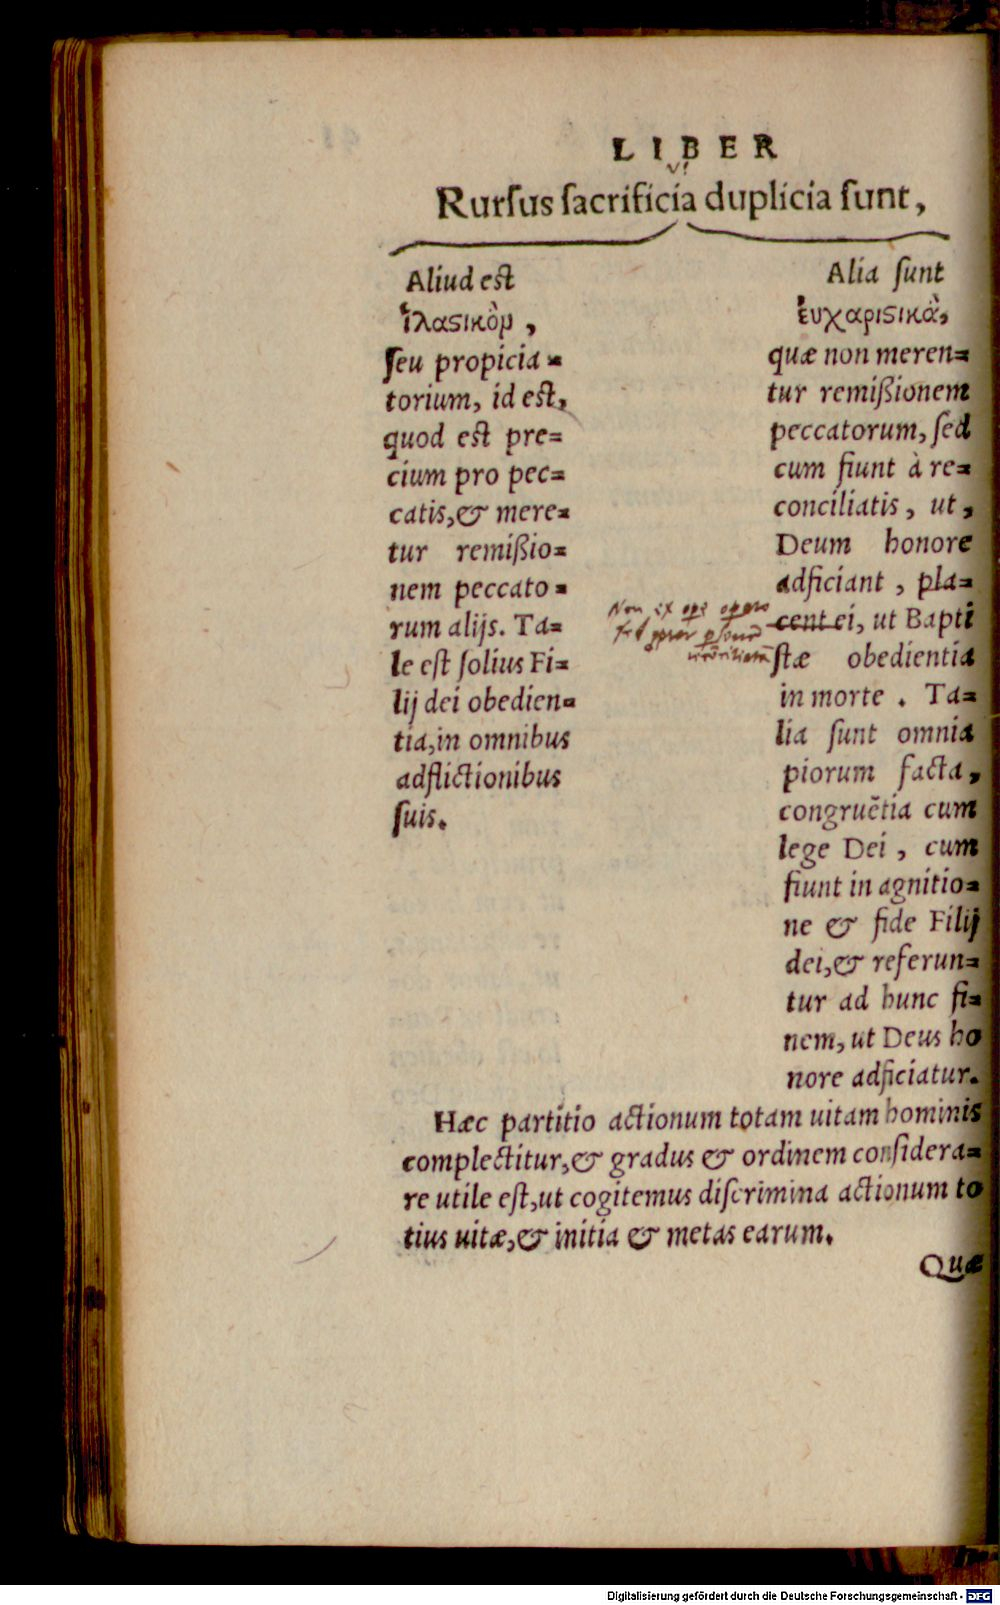 LIBER
Rurſus ſacrificia duplicia ſunt,
Aliud eſt
ἱλαϛικὸμ,
ſeu propicia-
torium, id eſt,
quod eſt pre-
cium pro pec-
catis, & mere-
tur remißio-
nem peccato-
rum alijs. Ta-
le eſt ſolius Fi-
lij dei obedien-
tia, in omnibus
adflictionibus
ſuis.
Alia ſunt
ἐυχαριϛικὰ,
quæ non meren-
tur remißionem
peccatorum, ſed
cum fiunt à re-
conciliatis, ut,
Deum honore
adficiant, pla-
cent ei, ut Bapti
ſtæ obedientia
in morte. Ta-
lia ſunt omnia
piorum facta,
congruẽtia cum
lege Dei, cum
fiunt in agnitio-
ne & fide Filij
dei, & referun-
tur ad hunc fi-
nem, ut Deus ho
nore adficiatur.
Non ex ope operato
Hæc partitio actionum totam uitam hominis
complectitur, & gradus & ordinem conſidera-
re utile eſt, ut cogitemus diſcrimina actionum to
tius uitæ, & initia & metas earum.
Quæ
Digitalisierung gefördert durch die Deutsche Forschungsgemeinschaft - DFG